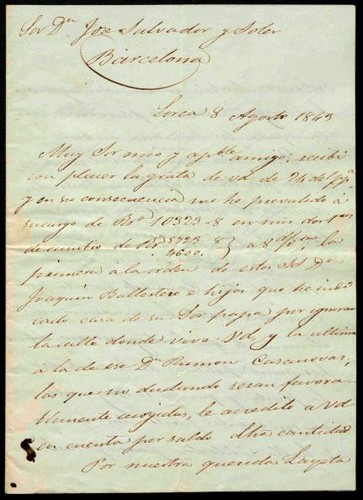 Sor Dn José Salvador y Soler
Barcelona
Lorca 8 Agosto 1843
Muy Sor mio y apble amigo; recibí
con placer la grata de vd de 24 del pp
y en su consecuencia me he prevalido á
su cargo de Rs 10323.8 en mis dos
de cambio de Rs 5723.8 } a 8 d/v la
4600.
primera á la orden de estos SS Dn
Joaquin Ballester é hijos que he indi
cado casa de su Sor papa por ignorar
la calle donde vive Vd y la ultima
á la de ese Dn Ramon Casanovas,
las que no dudando seran favora
blemente acojidas, le acredito a Vd
en cuenta por saldo dha cantidad
Por nuestra querida Layeta